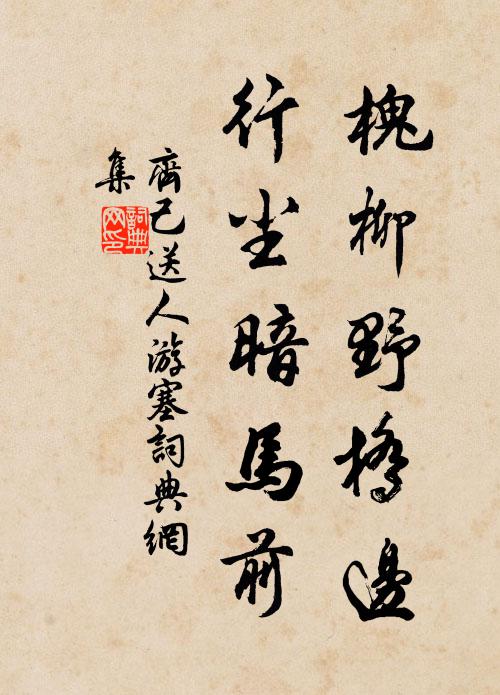 槐柳野橋邊
行尘暗馬前
齊己送人游塞詞典網
集
詞典網印